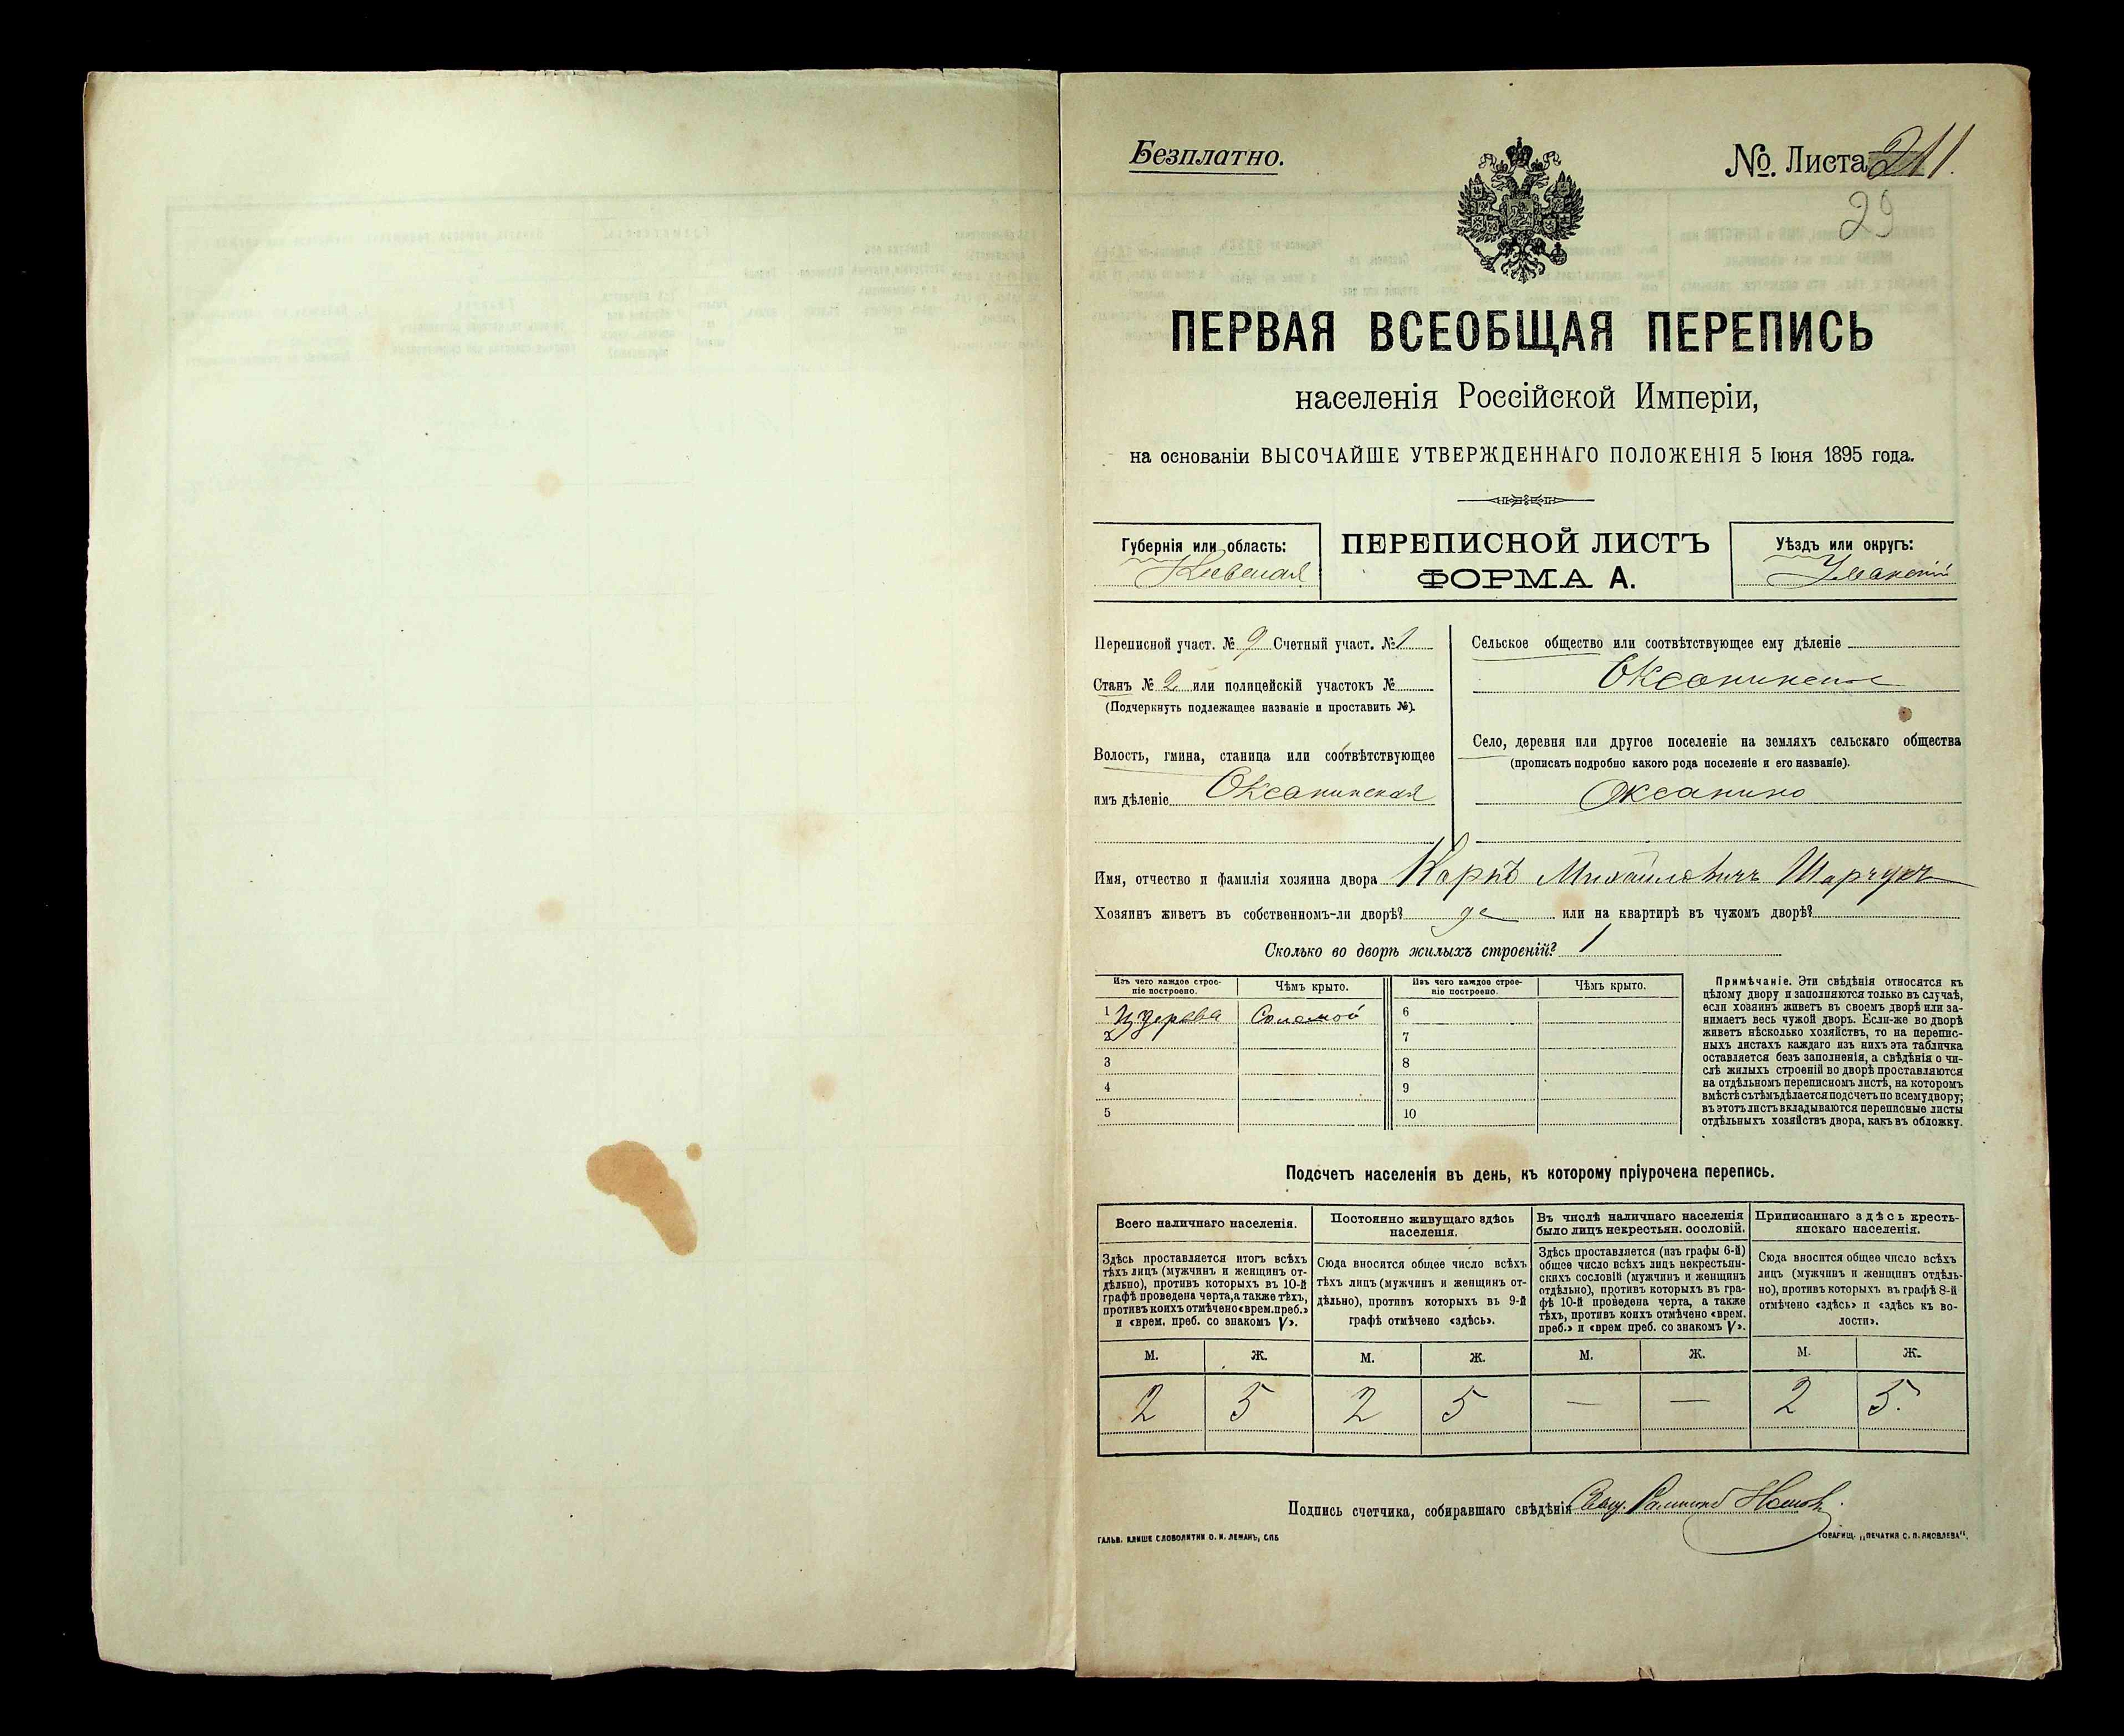 Безплатно.
№. Листа 211.
29
ПЕРВАЯ ВСЕОБЩАЯ ПЕРЕПИСЬ
населенія Россійской Имперіи,
на основаніи ВЫСОЧАЙШЕ УТВЕРЖДЕННАГО ПОЛОЖЕНІЯ 5 Іюня 1895 года.
Губернія или область:
Кіевская
ПЕРЕПИСНОЙ ЛИСТЪ
ФОРМА А.
Уѣздъ или округъ:
Уманскій
Переписной участ. № 9 Счетный участ. № 1
Станъ № 2 или полицейскій участокъ №
(Подчеркнуть подлежащее названіе и проставить №).
Волость, гмина, станица или соотвѣтствующее
имъ дѣленіе Оксанинская
Сельское общество или соотвѣтствующее ему дѣленіе
Оксанинское
Село, деревня или другое поселеніе на земляхъ сельскаго общества
(прописать подробно какого рода поселеніе и его названіе).
Оксанино
Имя, отчество и фамилія хозяина двора Карпъ Михайловичъ Шарчукъ
Хозяинъ живетъ въ собственномъ-ли дворѣ? да или на квартирѣ въ чужомъ дворѣ?
Сколько во дворѣ жилыхъ строеній? 1
Изъ чего каждое строе-
ніе построено.
Чѣмъ крыто.
Изъ чего каждое строе-
ніе построено.
Чѣмъ крыто.
1 Изъ дерева Соломой 6
2 7
3 8
4 9
5 10
Примѣчаніе. Эти свѣдѣнія относятся къ
цѣлому двору и заполняются только въ случаѣ,
если хозяинъ живетъ въ своемъ дворѣ или за-
нимаетъ весь чужой дворъ. Если-же во дворѣ
живетъ нѣсколько хозяйствъ, то на перепис-
ныхъ листахъ каждаго изъ нихъ эта табличка
оставляется безъ заполненія, а свѣдѣнія о чи-
слѣ жилыхъ строеній во дворѣ проставляются
на отдѣльномъ переписномъ листѣ, на которомъ
вмѣстѣ съ тѣмъ дѣлается подсчетъ по всему двору;
въ этотъ листъ вкладываются переписные листы
отдѣльныхъ хозяйствъ двора, какъ въ обложку.
Подсчетъ населенія въ день, къ которому пріурочена перепись.
Всего наличнаго населенія.
Здѣсь проставляется итогъ всѣхъ
тѣхъ лицъ (мужчинъ и женщинъ от-
дѣльно), противъ которыхъ въ 10-й
графѣ проведена черта, а также тѣхъ,
противъ коихъ отмѣчено «врем. преб.»
и «врем. преб. со знакомъ V».
Постоянно живущаго здѣсь
населенія.
Сюда вносится общее число всѣхъ
тѣхъ лицъ (мужчинъ и женщинъ от-
дѣльно), противъ которыхъ въ 9-й
графѣ отмѣчено «здѣсь».
Въ числѣ наличнаго населенія
было лицъ некрестьян. сословій.
Здѣсь проставляется (изъ графы 6-й)
общее число всѣхъ лицъ некрестьян-
скихъ сословій (мужчинъ и женщинъ
отдѣльно), противъ которыхъ въ гра-
фѣ 10-й проведена черта, а также
тѣхъ, противъ коихъ отмѣчено «врем.
преб.» и «врем преб. со знакомъ V».
Приписаннаго здѣсь кресть-
янскаго населенія.
Сюда вносится общее число всѣхъ
лицъ (мужчинъ и женщинъ отдѣль-
но), противъ которыхъ въ графѣ 8-й
отмѣчено «здѣсь» и «здѣсь къ во-
лости».
М. Ж. М. Ж. М. Ж. М. Ж.
2 5 2 5 — — 2 5.
Подпись счетчика, собиравшаго свѣдѣнія Свящ.
ГАЛЬВ. КЛИШЕ СЛОВОЛИТНИ О. И. ЛЕМАНЪ, СПБ
ТОВАРИЩ. „ПЕЧАТНЯ С. П. ЯКОВЛЕВА".